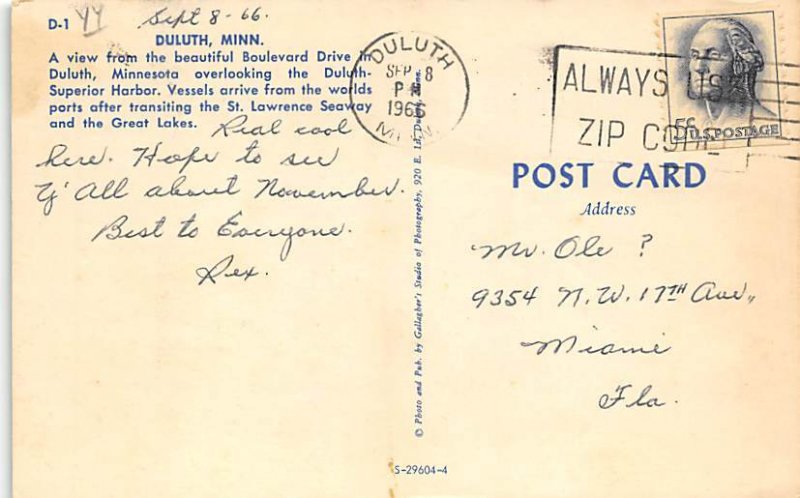 D-1 YY Sept 8-66.
DULUTH, MINN.
A view from the beautiful Boulevard Drive in
Duluth, Minnesota overlooking the Duluth-
Superior Harbor. Vessels arrive from the worlds
ports after transiting the St. Lawrence Seaway
and the Great Lakes.
Real cool
here. Hope to see
Y' All about November.
Best to Everyone.
Rex.
© Photo and Pub. by Gallagher's Studio of Photography, 920 E. 1st, Duluth, Minn.
S-29604-4
DULUTH
SEP 8
P
1966
MINN.
ALWAYS USE
ZIP CODE
5¢ U.S. POSTAGE
POST CARD
Address
Mr. Ole ?
9354 N.W. 17TH Ave.,
Miami
Fla.